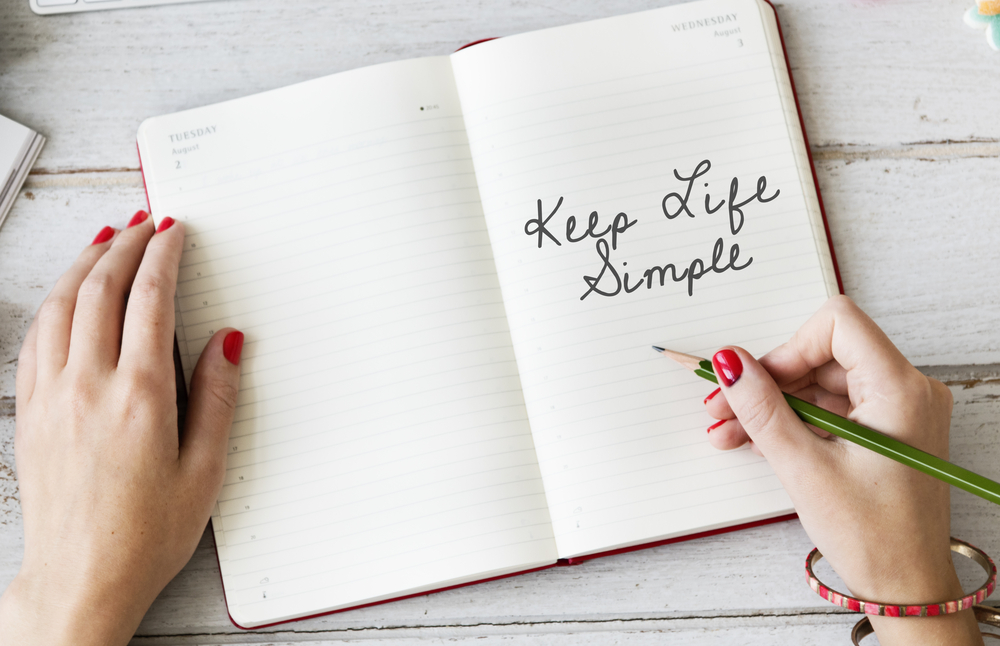 TUESDAY
August
2
WEDNESDAY
August
3
Keep Life
Simple